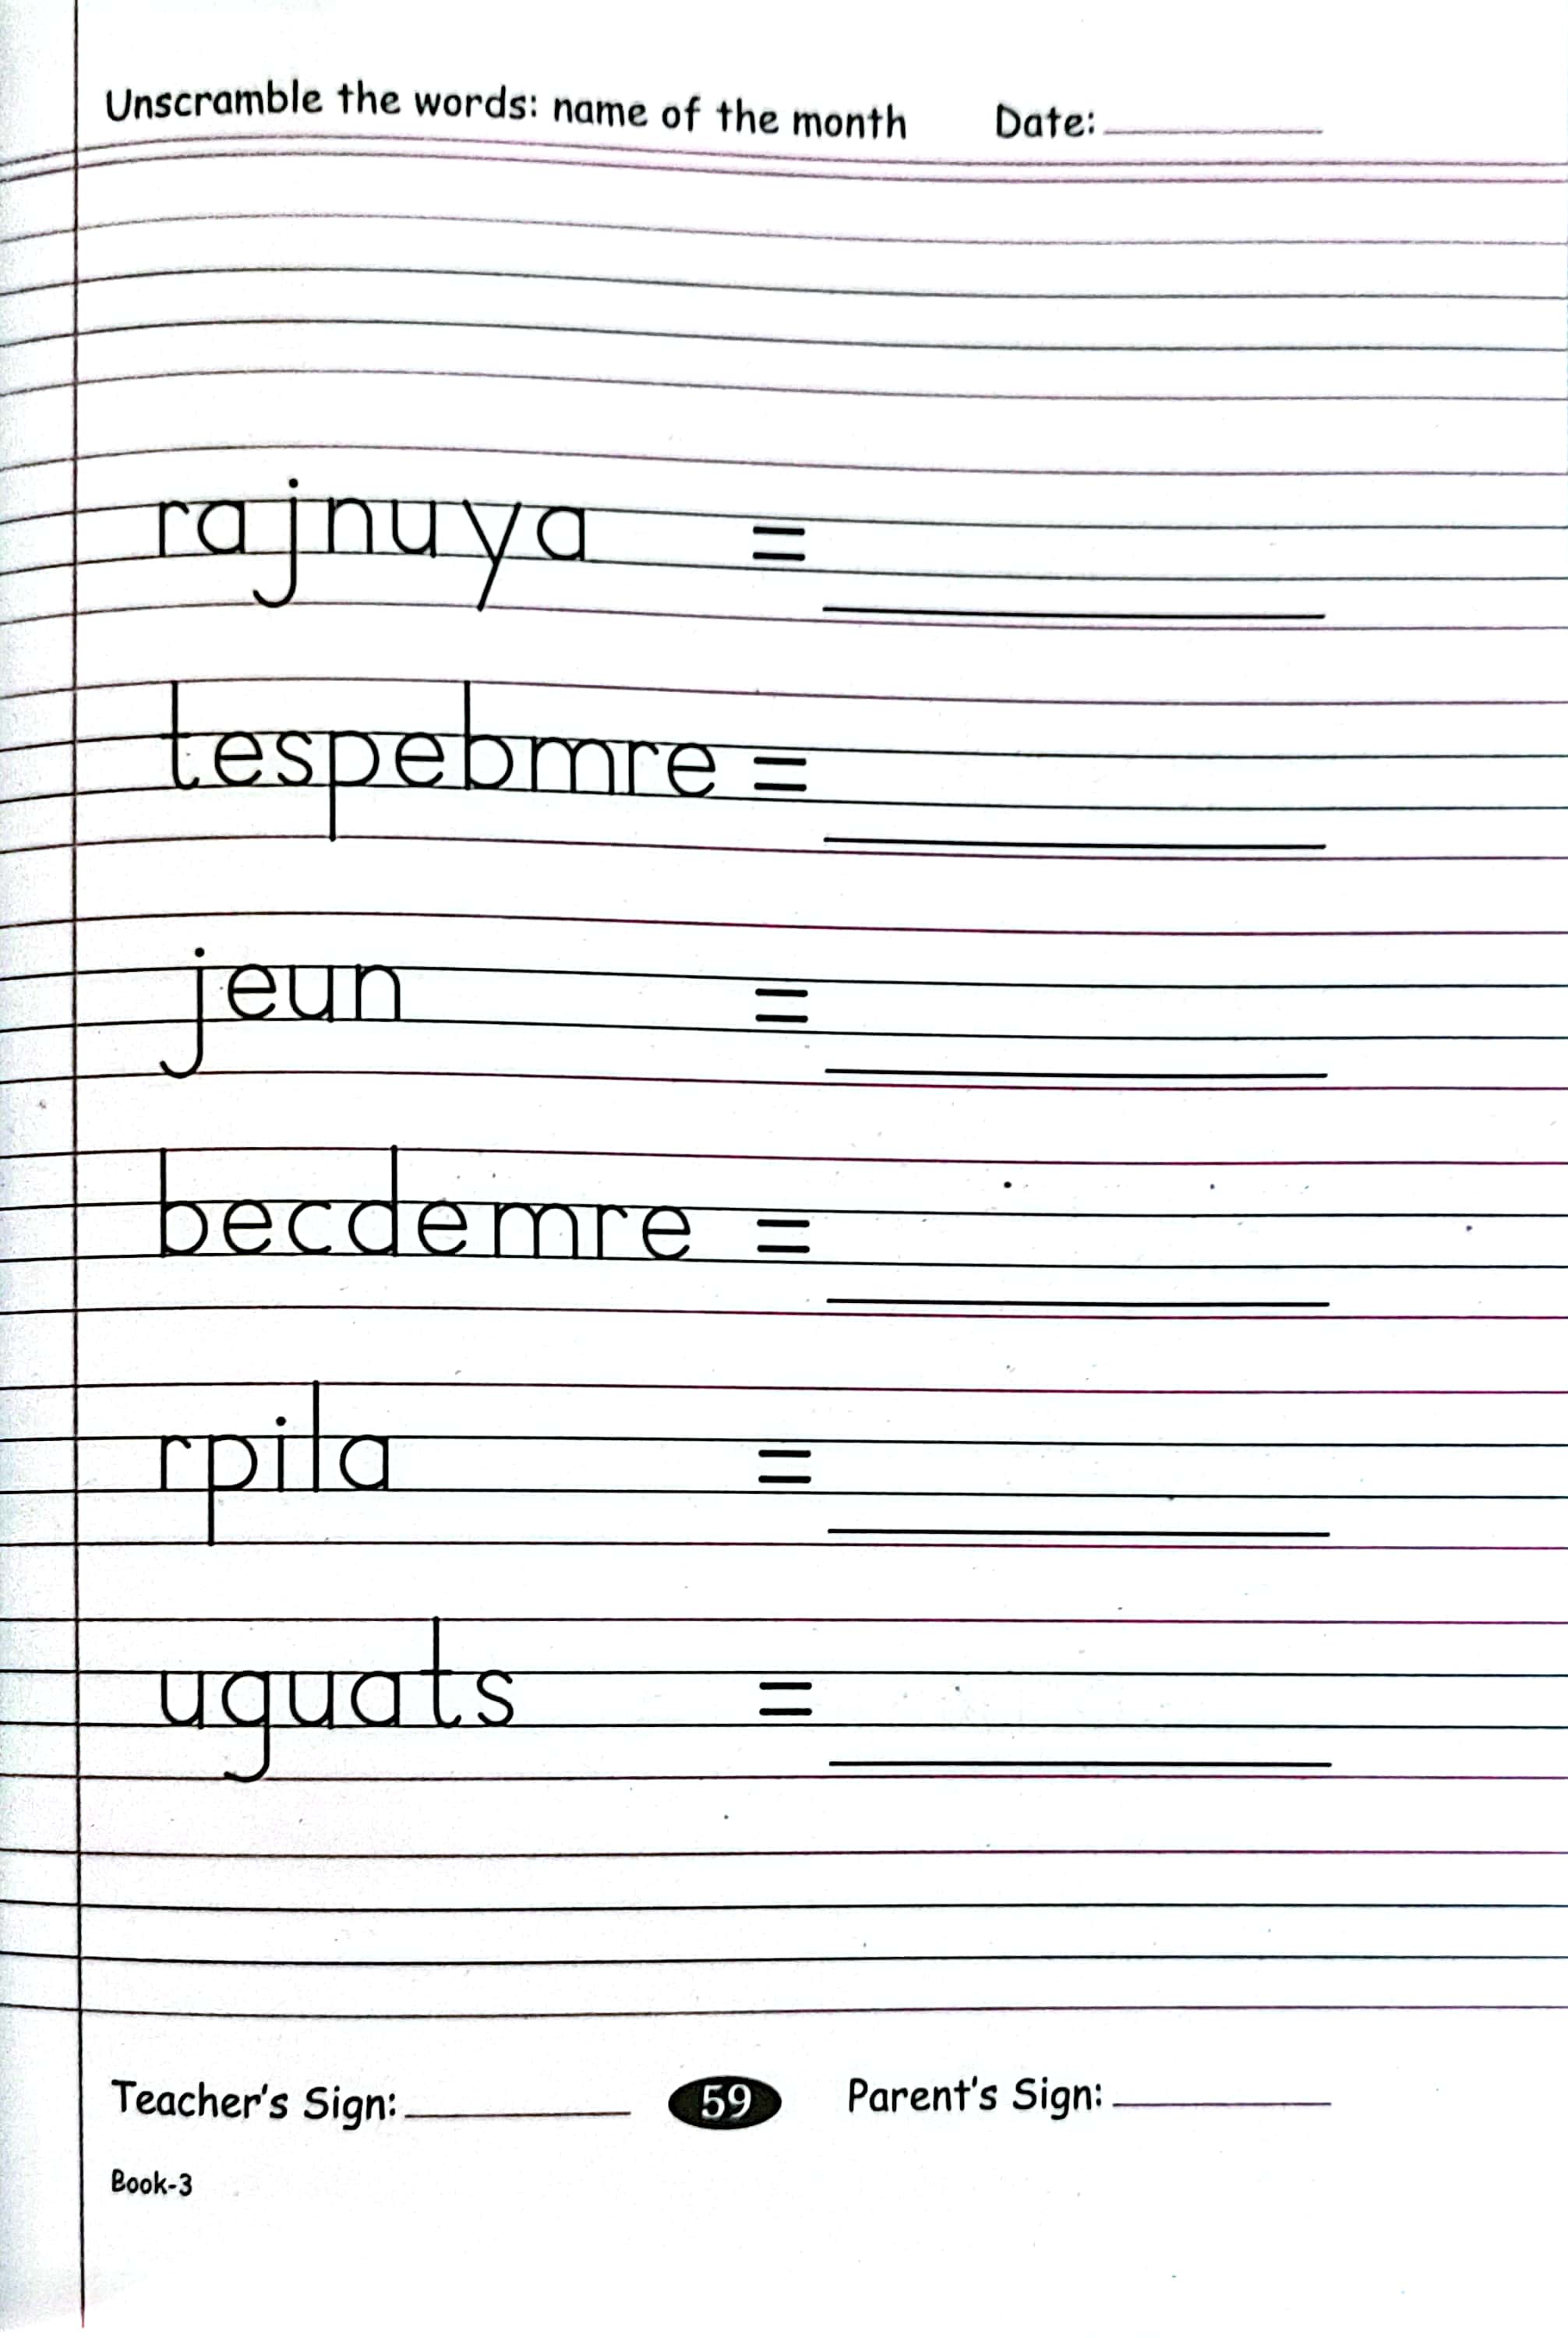 Unscramble the words: name of the month Date:
rajnuya =
tespebmre =
jeun =
becdemre =
rpila =
uguats =
Teacher's Sign: 59 Parent's Sign:
Book-3